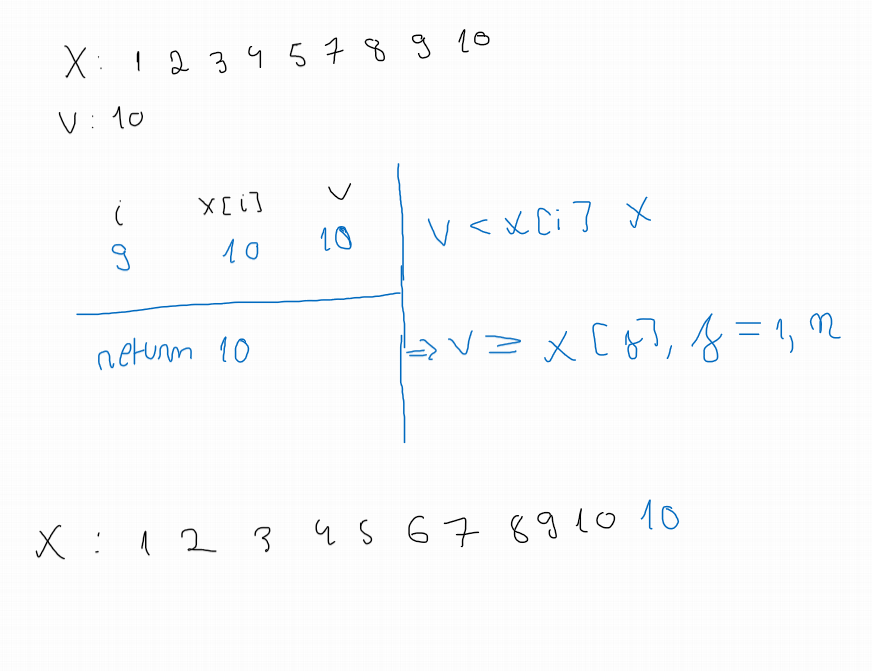 X: 1 2 3 4 5 7 8 9 10
V: 10
i x[i] V
9 10 10
V < X[i] X
return 10
⇒ V ≥ X[j], j = 1, n
X : 1 2 3 4 5 6 7 8 9 10 10